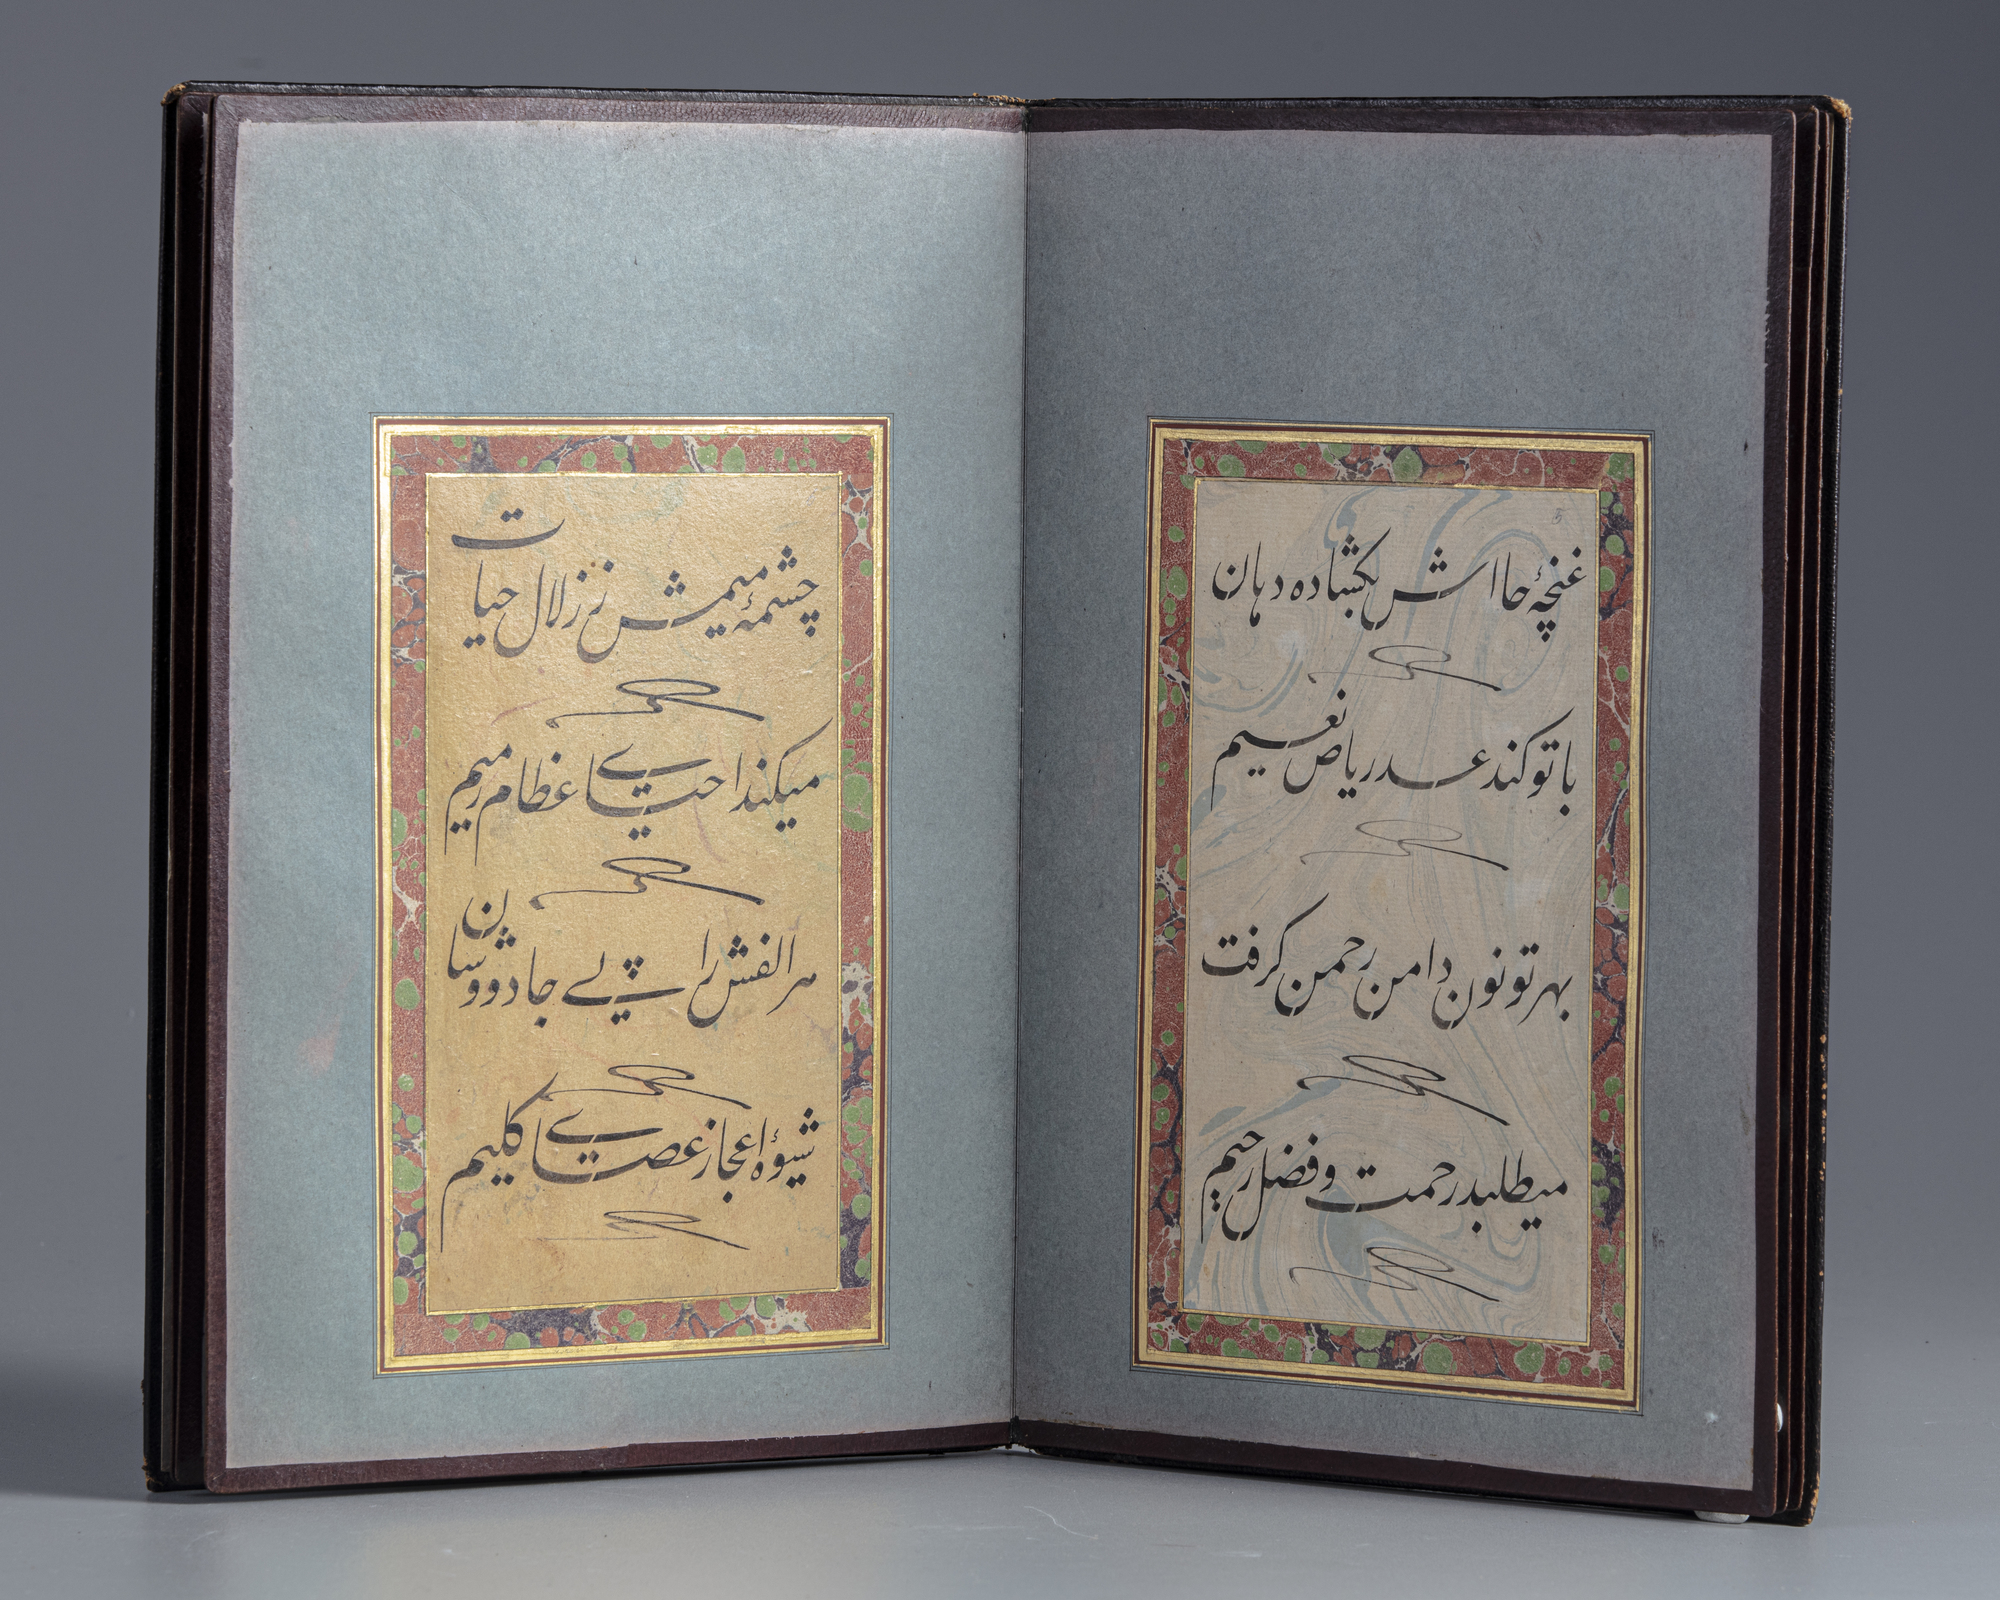 غنچهٔ حااش بکشاده دهان
با تو کند عد ریاض نعیم
بهر تو نون دامن رحمن کرفت
میطلبد رحمت و فضل رحیم
چشمهٔ میمش ز زلال حیات
میکند احیای عظام رمیم
هر الفش را پی جادووشان
شیوهٔ اعجاز عصای کلیم